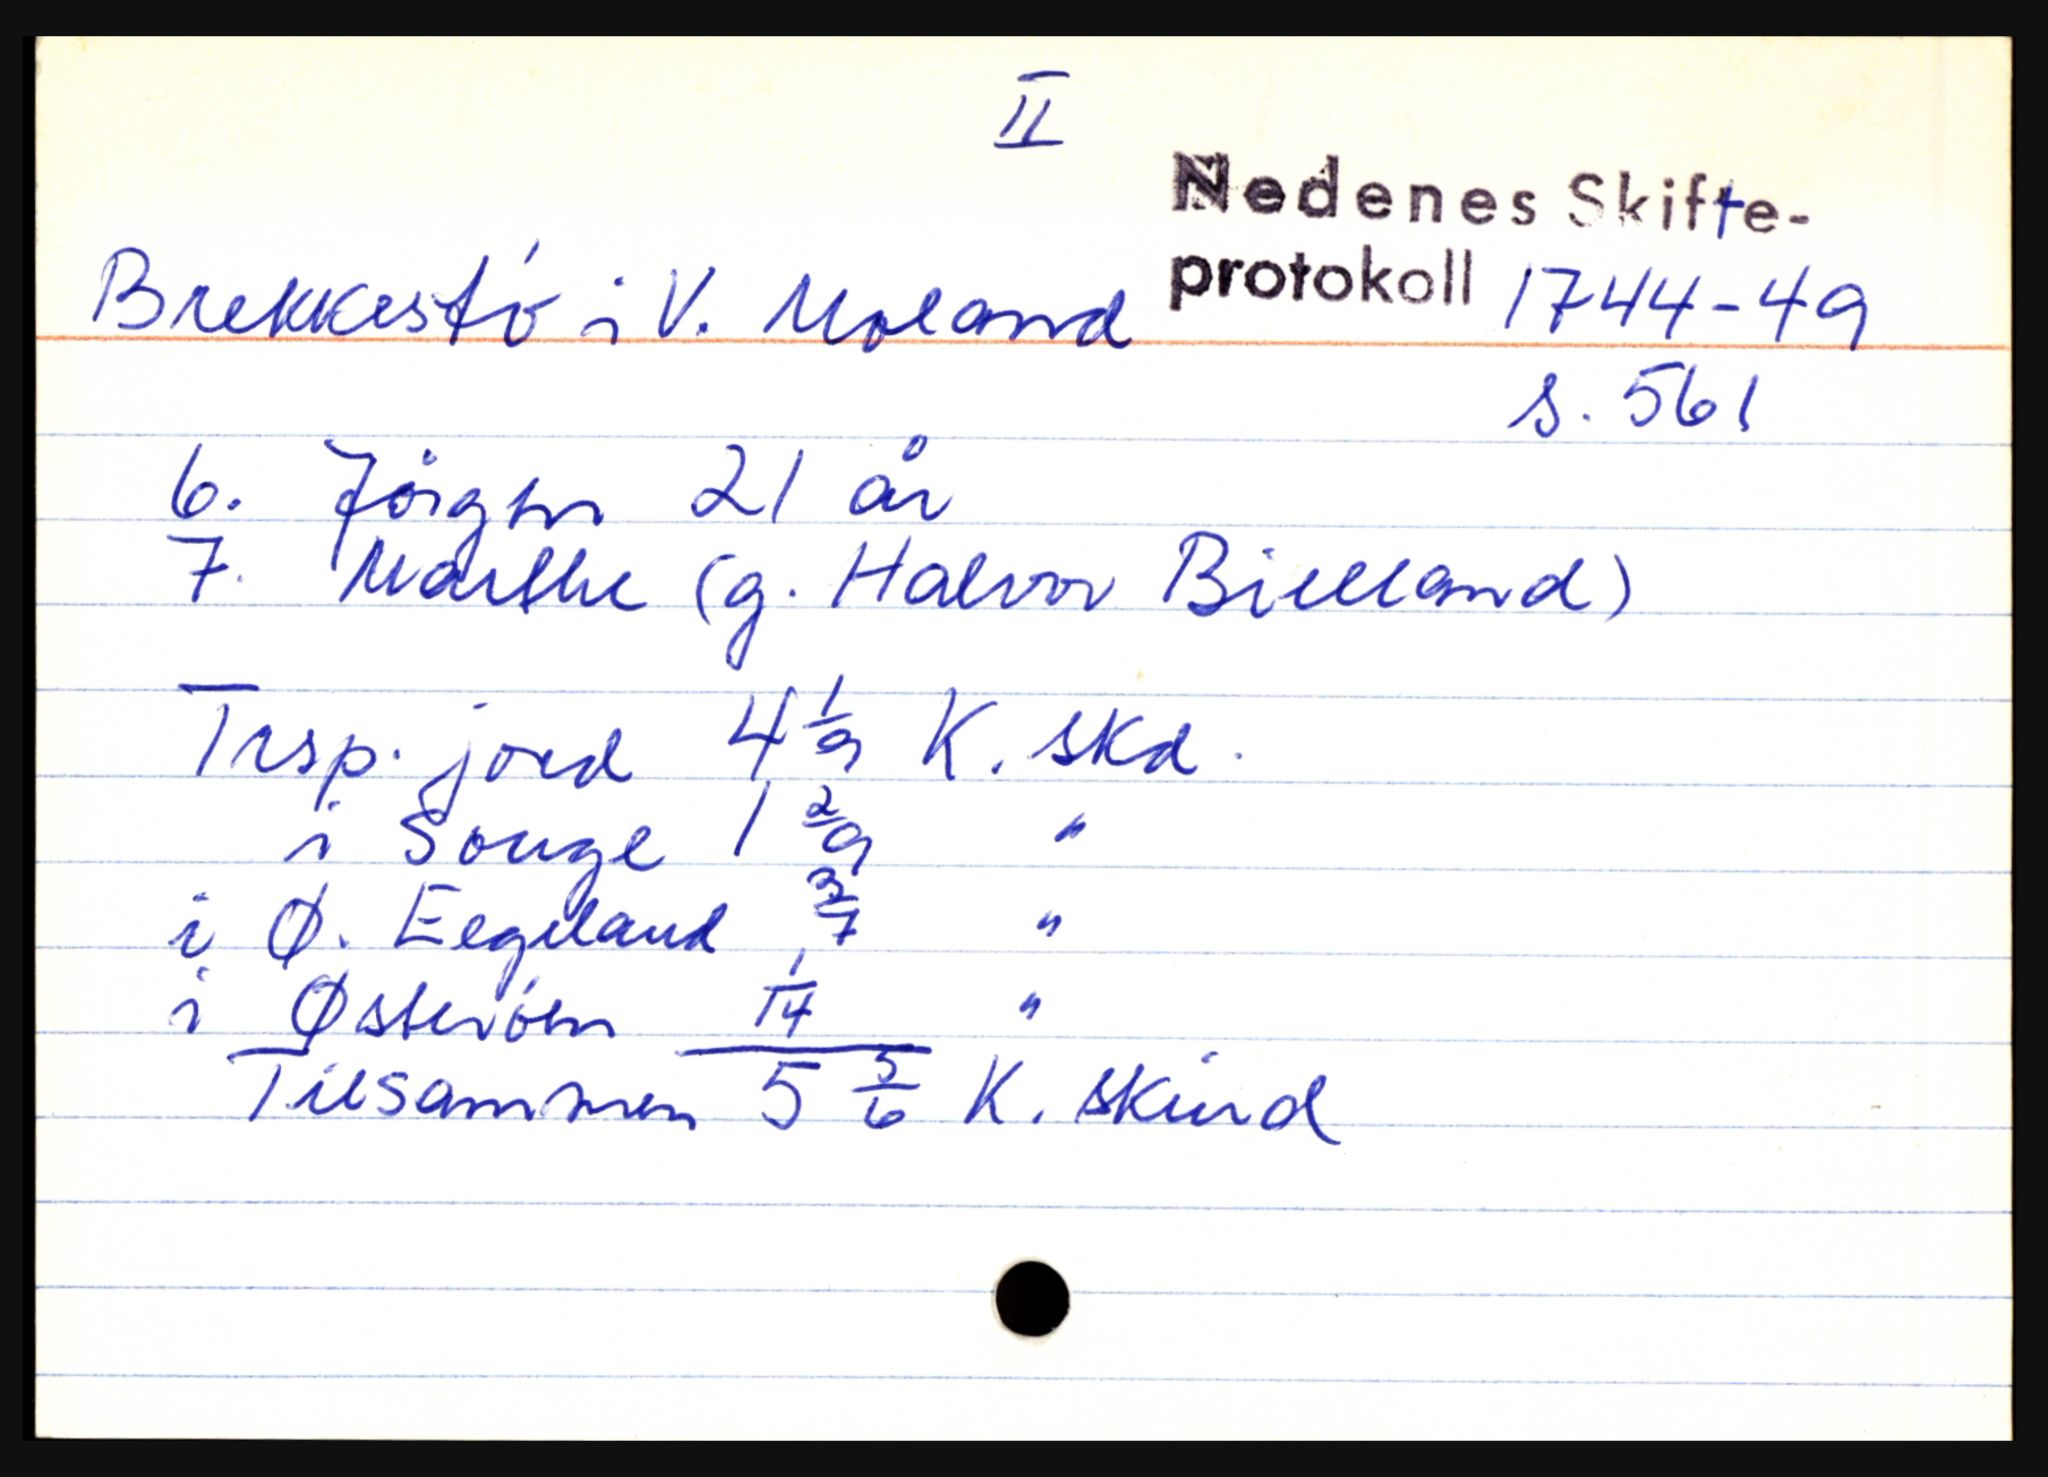 II
Nedenes Skifte-
protokoll 1744-49
Brekkestö i V. Moland
s. 561
6. Jörgen 21 år
7. Marthe (g. Halvor Bielland)
Tvsp. jord 4 1/9 K. skd.
i Souge 1 2/9 "
i Ø. Eegeland 3/7 "
i Østeröen 1/14 "
Tilsammen 5 5/6 K. skind